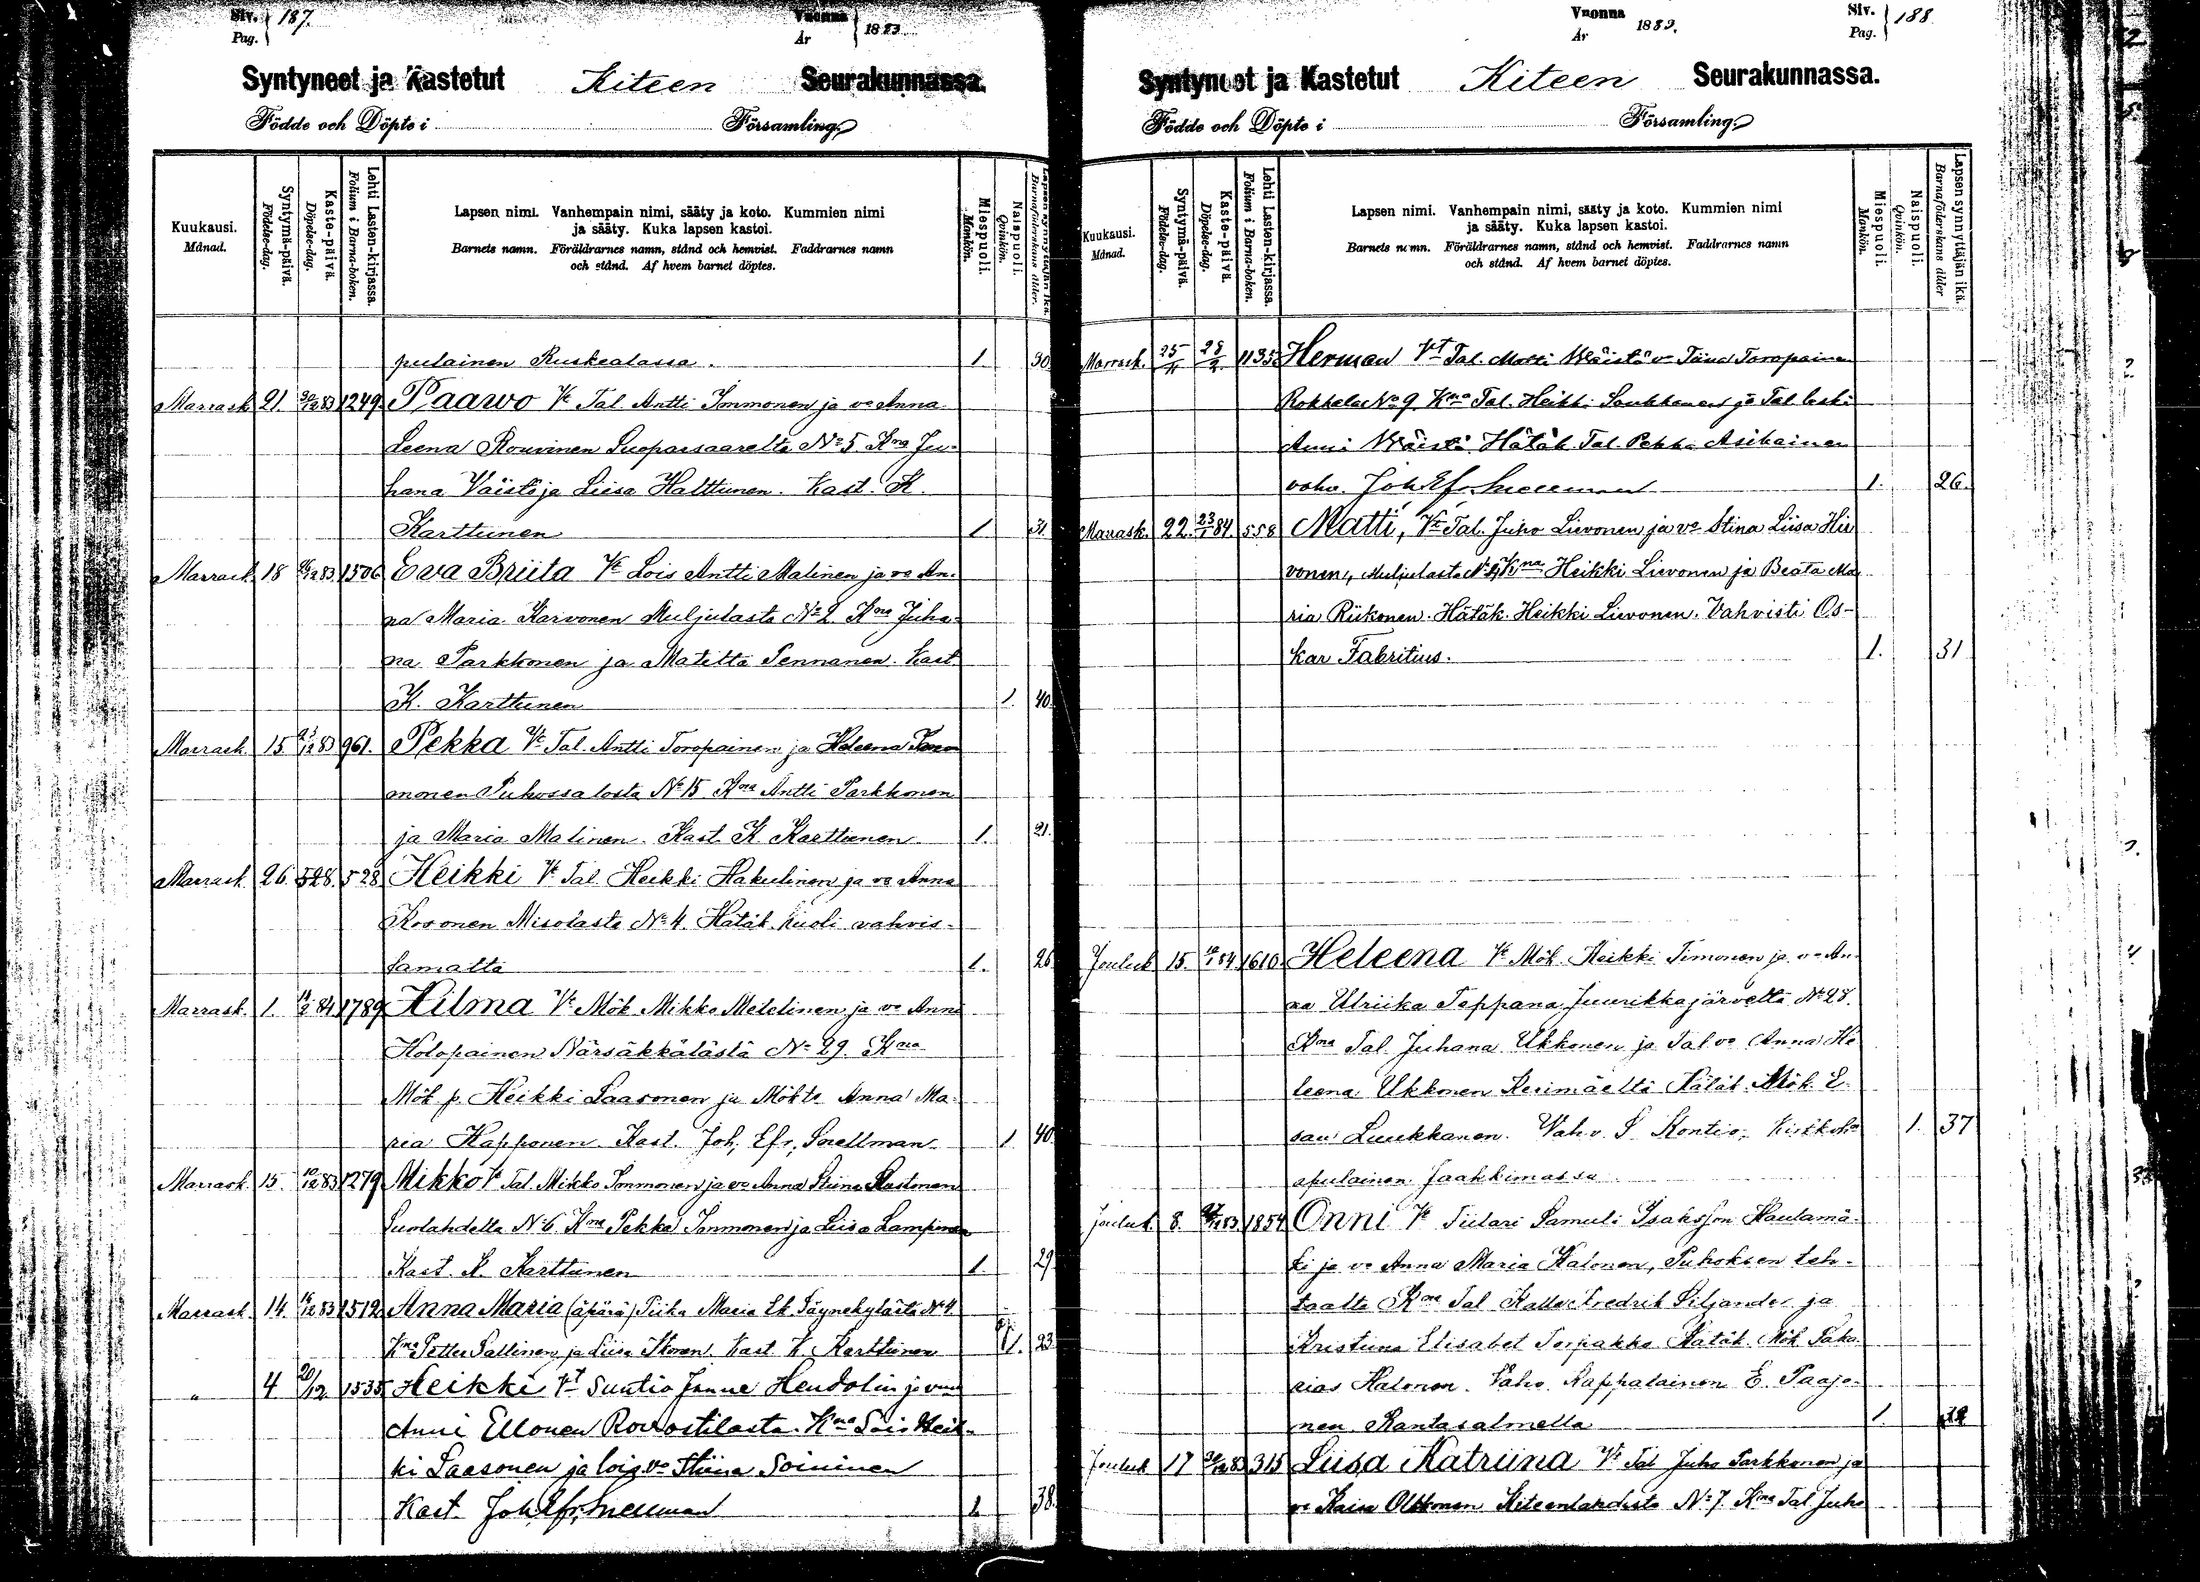 Siv. 187.
Pag.
Vuonna 1883
År
Syntyneet ja Kastetut Kiteen Seurakunnassa.
Födde och Döpte i Församling.
Kuukausi.
Månad.
Syntymä-päivä.
Födelse-dag.
Kaste-päivä.
Döpelse-dag.
Lehti Lasten-kirjassa.
Folium i Barna-boken.
Lapsen nimi. Vanhempain nimi, sääty ja koto. Kummien nimi
ja sääty. Kuka lapsen kastoi.
Barnets namn. Föräldrarnes namn, stånd och hemvist. Faddrarnes namn
och stånd. Af hvem barnet döptes.
Miespuoli.
Mankön.
Naispuoli.
Qvinkön.
Lapsen synnyttäjän ikä.
Barnaföderskans ålder.
pulainen Ruskealassa. 1. 30
Marrask. 21. 1249 Paawo Vt Tal. Antti Immonen ja vo Anna
Leena Rouvinen Suoparsaarelta No 5 Kma Ju-
hana Väistö ja Liisa Halttunen. Kast. K.
Karttunen 1 31.
Marrask. 18 1506 Eva Briita Vt Lois Antti Malinen ja vo An-
na Maria Karvonen Muljulasta No 2 Kma Juha-
na Parkkonen ja Matilta Pennanen. Kast.
K. Karttunen 1. 40.
Marrask. 15 961. Pekka Vt Tal. Antti Toropainen ja Heleena
monen Puhossalosta No 15 Kma Antti Parkkonen
ja Maria Malinen. Kast. K. Karttunen 1. 21.
Marrask. 26. 528. 528 Heikki Vt Tal. Heikki Hakulinen ja vo Anna
Kosonen Misolasta No 4. Hätäk. kuoli vahvis-
tamatta 1. 26
Marrask. 1. 1789 Hilma Vt Mök. Mikko Meklinen ja vo Anni
Holopainen Närsäkkälästä No 29. Kma
Mök. p. Heikki Laasonen ja Mökts Anna Ma-
ria Kapponen Kast. Joh. Efr. Snellman 1. 40.
Marrask. 15. 1279 Mikko Vt Tal. Mikko Immonen ja vo Anna Stiina Rastonen
Suolahdella No 6 Kma Pekka Immonen ja Liisa Lampinen
Kast. K. Karttunen 1. 29.
Marrask. 14. 1512 Anna Maria (äpärä) Piika Maria Ek. Säynekylästä No 4
Kma Petter Pallinen ja Liisa Ikonen Kast. K. Karttunen 1. 23
" 4 20/12 1535 Heikki Vt Suutio Janne Hendolin ja vmo
Anni Ellonen Rovostilasta. Kma Lois Heik-
ki Laasonen ja lois vo Stiina Soininen
Kast. Joh. Efr. Snellman 1. 38.
Vuonna 1883.
År
Siv. 188
Pag.
Syntyneet ja Kastetut Kiteen Seurakunnassa.
Födde och Döpte i Församling.
Kuukausi.
Månad.
Syntymä-päivä.
Födelse-dag.
Kaste-päivä.
Döpelse-dag.
Lehti Lasten-kirjassa.
Folium i Barna-boken.
Lapsen nimi. Vanhempain nimi, sääty ja koto. Kummien nimi
ja sääty. Kuka lapsen kastoi.
Barnets namn. Föräldrarnes namn, stånd och hemvist. Faddrarnes namn
och stånd. Af hvem barnet döptes.
Miespuoli.
Mankön.
Naispuoli.
Qvinkön.
Lapsen synnyttäjän ikä.
Barnaföderskans ålder
Marrask. 1135 Herman Vt Tal. Matti Wäistö vo Toropainen
Rokkala No 9 Kma Tal. Heikki Saukkonen ja Tal. leski
Anni Wäistö Hätäk. Tal. Pekka Asikainen
vahv. Joh. Ef. Snellman 1. 26.
Marrask. 22. 23/1 84 558 Matti, Vt Tal. Juho Lievonen ja vo Stina Liisa Hir
vonen, Muljulasta Kma Heikki Lievonen ja Beata Ma
ria Riikonen. Hätäk. Heikki Lievonen. Vahvisti Os-
kar Fabritius. 1. 31
Jouluk 15. 1610. Heleena Vt Mök. Heikki Timonen ja vo An-
na Ulriika Teppana Juurikkajärveltä No 28.
Kma Tal. Juhana Ukkonen ja Tal. vo Anna He
leena Ukkonen Kesimäeltä Hätäk. Mök. E-
sau Luukkanen. Vahv. S. Kontio, Kirkkoh.
apulainen Jaakkimassa 1. 37
Jouluk. 8. 1854 Onni Vt Tiilari Samuli Isaksson Hautamä-
ki ja vo Anna Maria Halonen, Puhoksen teh-
taalta Kma Tal. Kalle Fredrik Siljander ja
Kristiina Elisabet Torpakko. Hätäk. Mök. Saka-
rias Halonen. Vahv. Kapphalainen E. Paajo-
nen Rantasalmella 1.
Jouluk 17 315 Liisa Katriina Vt Tal. Juho Parkkonen ja
vo Kaisa Olkkonen Kiteenlahdesta No 7. Kma Tal. Juho